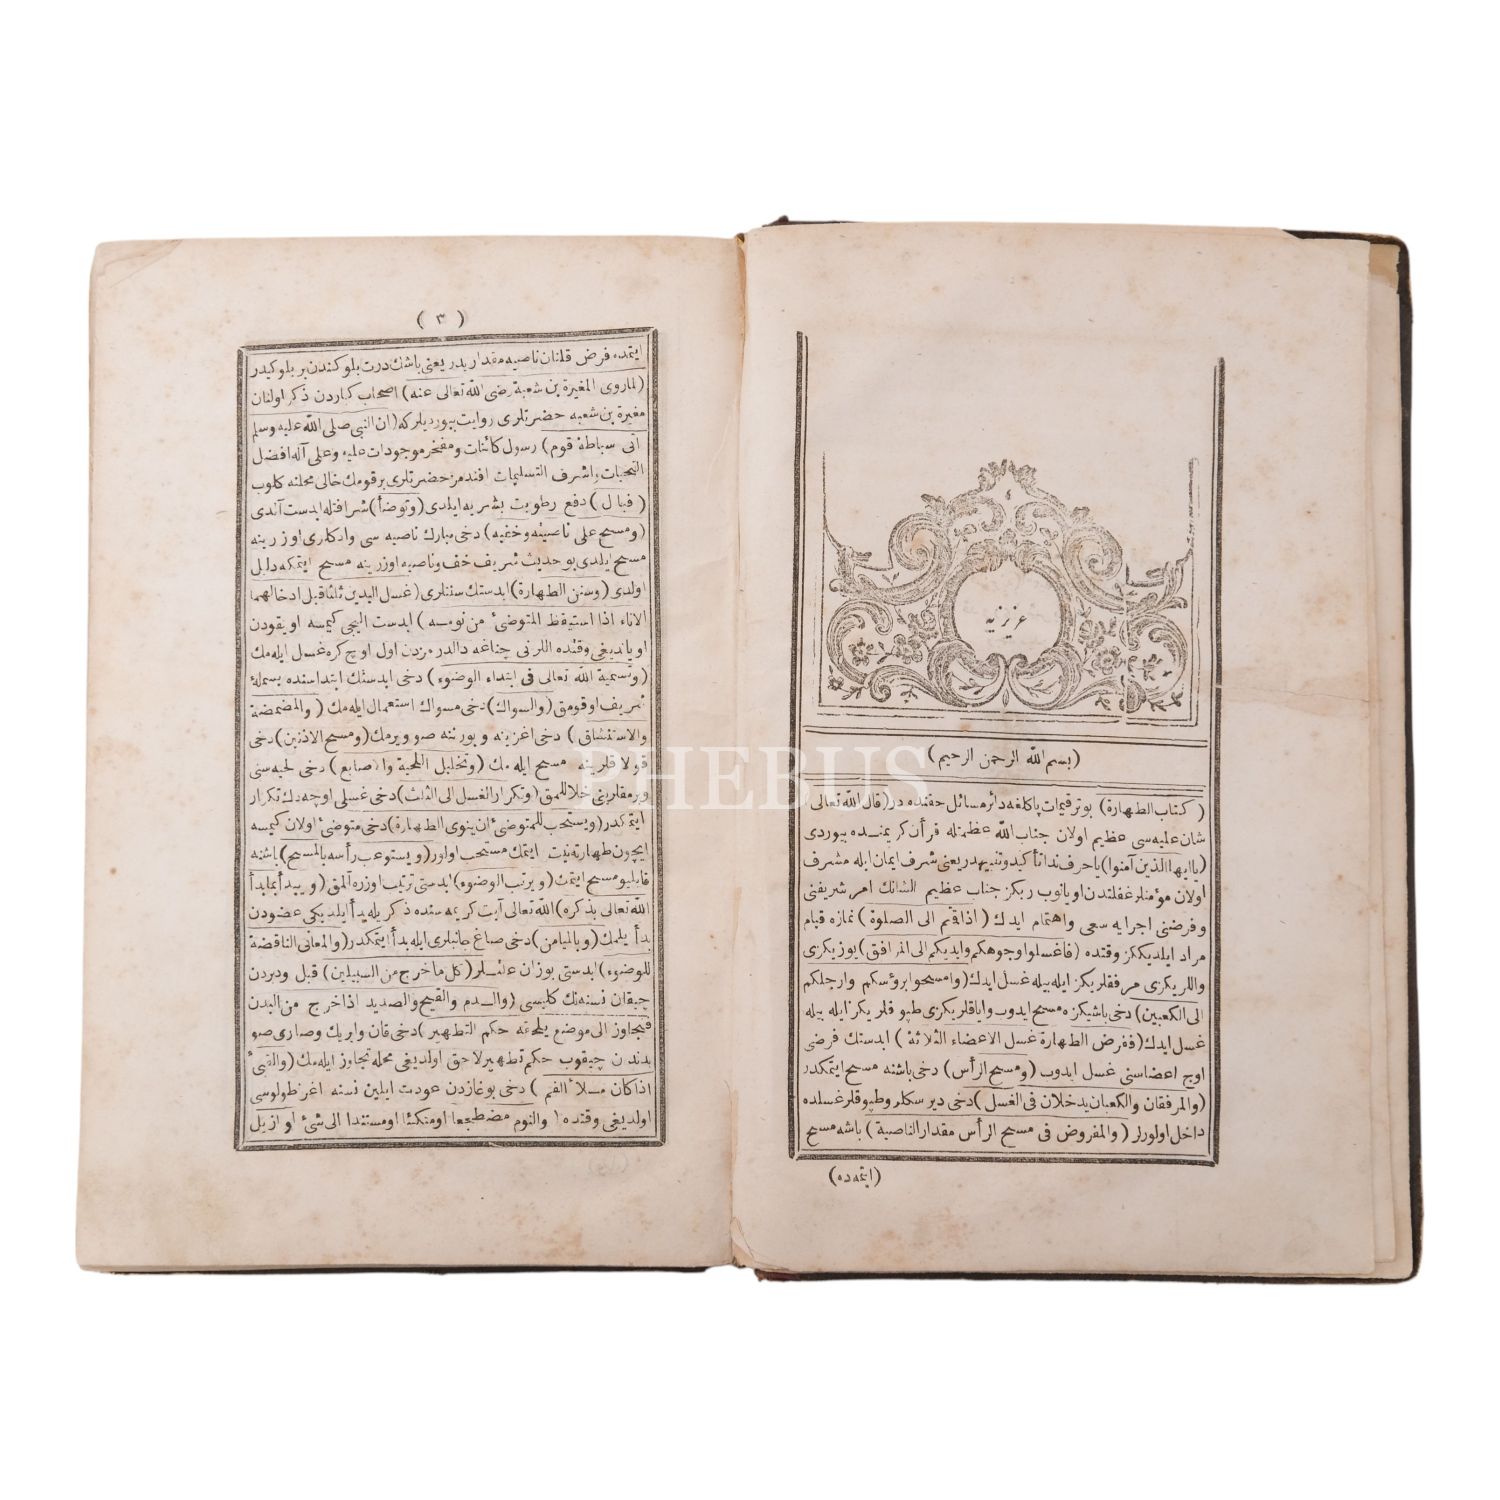 عزيزيه
(بسم الله الرحمن الرحيم)
(كتاب الطهارة) بو ترقيمات پاكلغه دائر مسائل حقنده در (قال الله تعالى
شان عليه سى عظيم اولان جناب الله عظمتله قرآن كريمنده بيوردى
(يا ايها الذين آمنوا) يا حرف ندا تأكيد و تنبيهدر يعنى شرف ايمان ايله مشرف
اولان مؤمنلر غفلتدن اويانوب ربكز جناب عظيم الشانك امر شريفنى
و فرضنى اجرايه سعى واهتمام ايدك (اذا قمتم الى الصلوة) نمازه قيام
مراد ايلديككز وقتده (فاغسلوا وجوهكم وايديكم الى المرافق) يوزيكزى
واللريكزى مرفقلريكز ايله بيله غسل ايدك (وامسحوا برؤسكم وارجلكم
الى الكعبين) دخى باشيكزه مسح ايدوب واياقلريكزى طپوقلريكز ايله بيله
غسل ايدك (ففرض الطهارة غسل الاعضاء الثلاثة) ابدستك فرضى
اوچ اعضاسنى غسل ايدوب (ومسح الرأس) دخى باشنه مسح ايتمكدر
(والمرفقان والكعبان يدخلان فى الغسل) دخى ديرسكلر وطپوقلر غسلده
داخل اولورلر (والمفروض فى مسح الرأس مقدار الناصية) باشه مسح
(ايتمده)
(٣)
ايتمده فرض قلنان ناصيه مقداريدر يعنى باشك درت بلوكندن بر بلوكيدر
(لما روى المغيرة بن شعبة رضى الله تعالى عنه) اصحاب كباردن ذكر اولنان
مغيرة بن شعبه حضرتلرى روايت بيورديلر كه (ان النبى صلى الله عليه وسلم
اتى سباطة قوم) رسول كائنات ومفخر موجودات عليه وعلى آله افضل
التحيات واشرف التسليمات افندمز حضرتلرى بر قومك خالى محلنه كلوب
(فبال) دفع رطوبت بشريه ايلدى (وتوضأ) شرافتله ابدست آلدى
(ومسح على ناصيته وخفيه) دخى مبارك ناصيه سى وادكلرى اوزرينه
مسح ايلدى بو حديث شريف خف وناصيه اوزرينه مسح ايتمكه دليل
اولدى (وسنن الطهارة) ابدستك سنتلرى (غسل اليدين ثلثا قبل ادخالهما
الاناء اذا استيقظ المتوضئ من نومه) ابدست اليجى كيمسه اويقودن
اوياندیغى وقتده اللرنى چناغه دالدرمزدن اول اوچ كره غسل ايله مك
(وتسمية الله تعالى فى ابتداء الوضوء) دخى ابدستك ابتداسنده بسملۀ
شريف اوقومق (والسواك) دخى مسواك استعمال ايله مك (والمضمضة
والاستنشاق) دخى اغزينه وبورننه صو ويرمك (ومسح الاذنين) دخى
قولاقلرينه مسح ايله مك (وتخليل اللحية والاصابع) دخى لحيه سنى
وپرمقلرينى خلاللمق (وتكرار الغسل الى الثلث) دخى غسلى اوچه دك تكرار
ايتمكدر (ويستحب للمتوضئ ان ينوى الطهارة) دخى متوضئ اولان كيمسه
ايچون طهارته نيت ايتمك مستحب اولور (ويستوعب رأسه بالمسح) باشنه
قابليو مسح ايتمك (ويرتب الوضوء) ابدستى ترتيب اوزره آلمق (ويبدأ بما بدأ
الله تعالى بذكره) الله تعالى آيت كريمه سنده ذكريله بدأ ايلديكى عضودن
بدأ ايلمك (وبالميامن) دخى صاغ جانبلرى ايله بدأ ايتمكدر (والمعانى الناقضة
للوضوء) ابدستى بوزان علتلر (كل ما خرج من السبيلين) قبل ودبردن
چيقان نسنه نك كليسى (والدم والقيح والصديد اذا خرج من البدن
فتجاوز الى موضع يلحقه حكم التطهير) دخى قان وايرك وصارى صو
بدندن چيقوب حكم تطهير لاحق اولديغى محله تجاوز ايله مك (والقئ
اذا كان ملأ الفم) دخى بوغازدن عودت ايلين نسنه اغز طولوسى
اولديغى وقتده (والنوم مضطجعا اومتكئا اومستندا الى شئ لو ازيل
PHEBUS